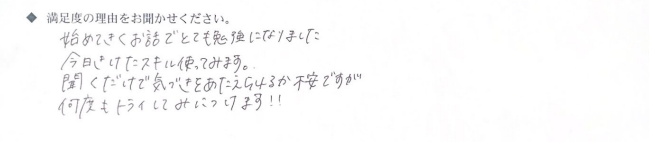 ◆ 満足度の理由をお聞かせください。
始めてきくお話でとても勉強になりました
今日きけたスキル使ってみます。
聞くだけで気づきをあたえらせるか不安ですが
何度もトライしてみにつけます!!